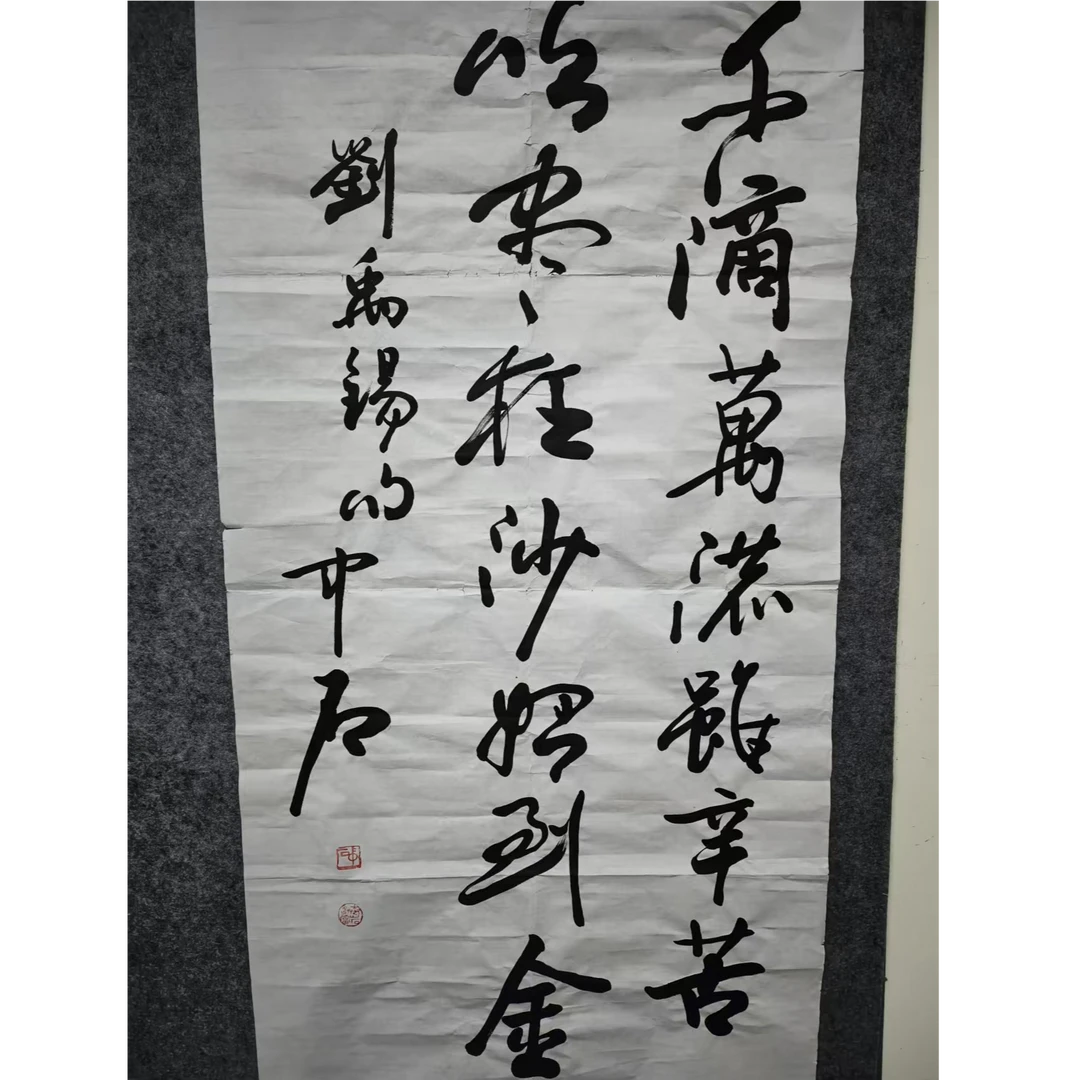 千滴萬漉雖辛苦
吹盡狂沙始到金
劉禹錫句中石